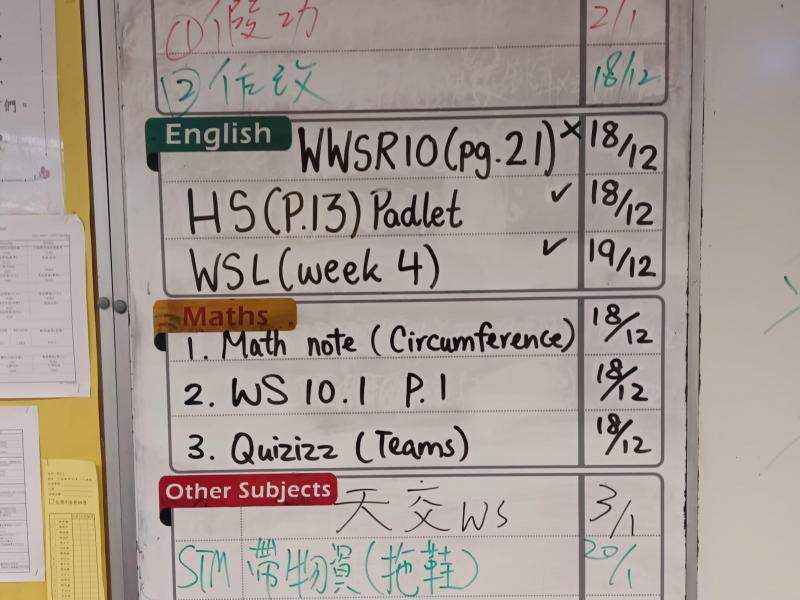 ①假功 2/1
②作改 18/12
English
WWSR10(pg.21) × 18/12
HS(P.13) Padlet ✓ 18/12
WSL(week 4) ✓ 19/12
Maths
1. Math note (Circumference) 18/12
2. WS 10.1 P.1 18/12
3. Quizizz (Teams) 18/12
Other Subjects
天交WS 3/1
STM 帶物資(拖鞋) 20/1